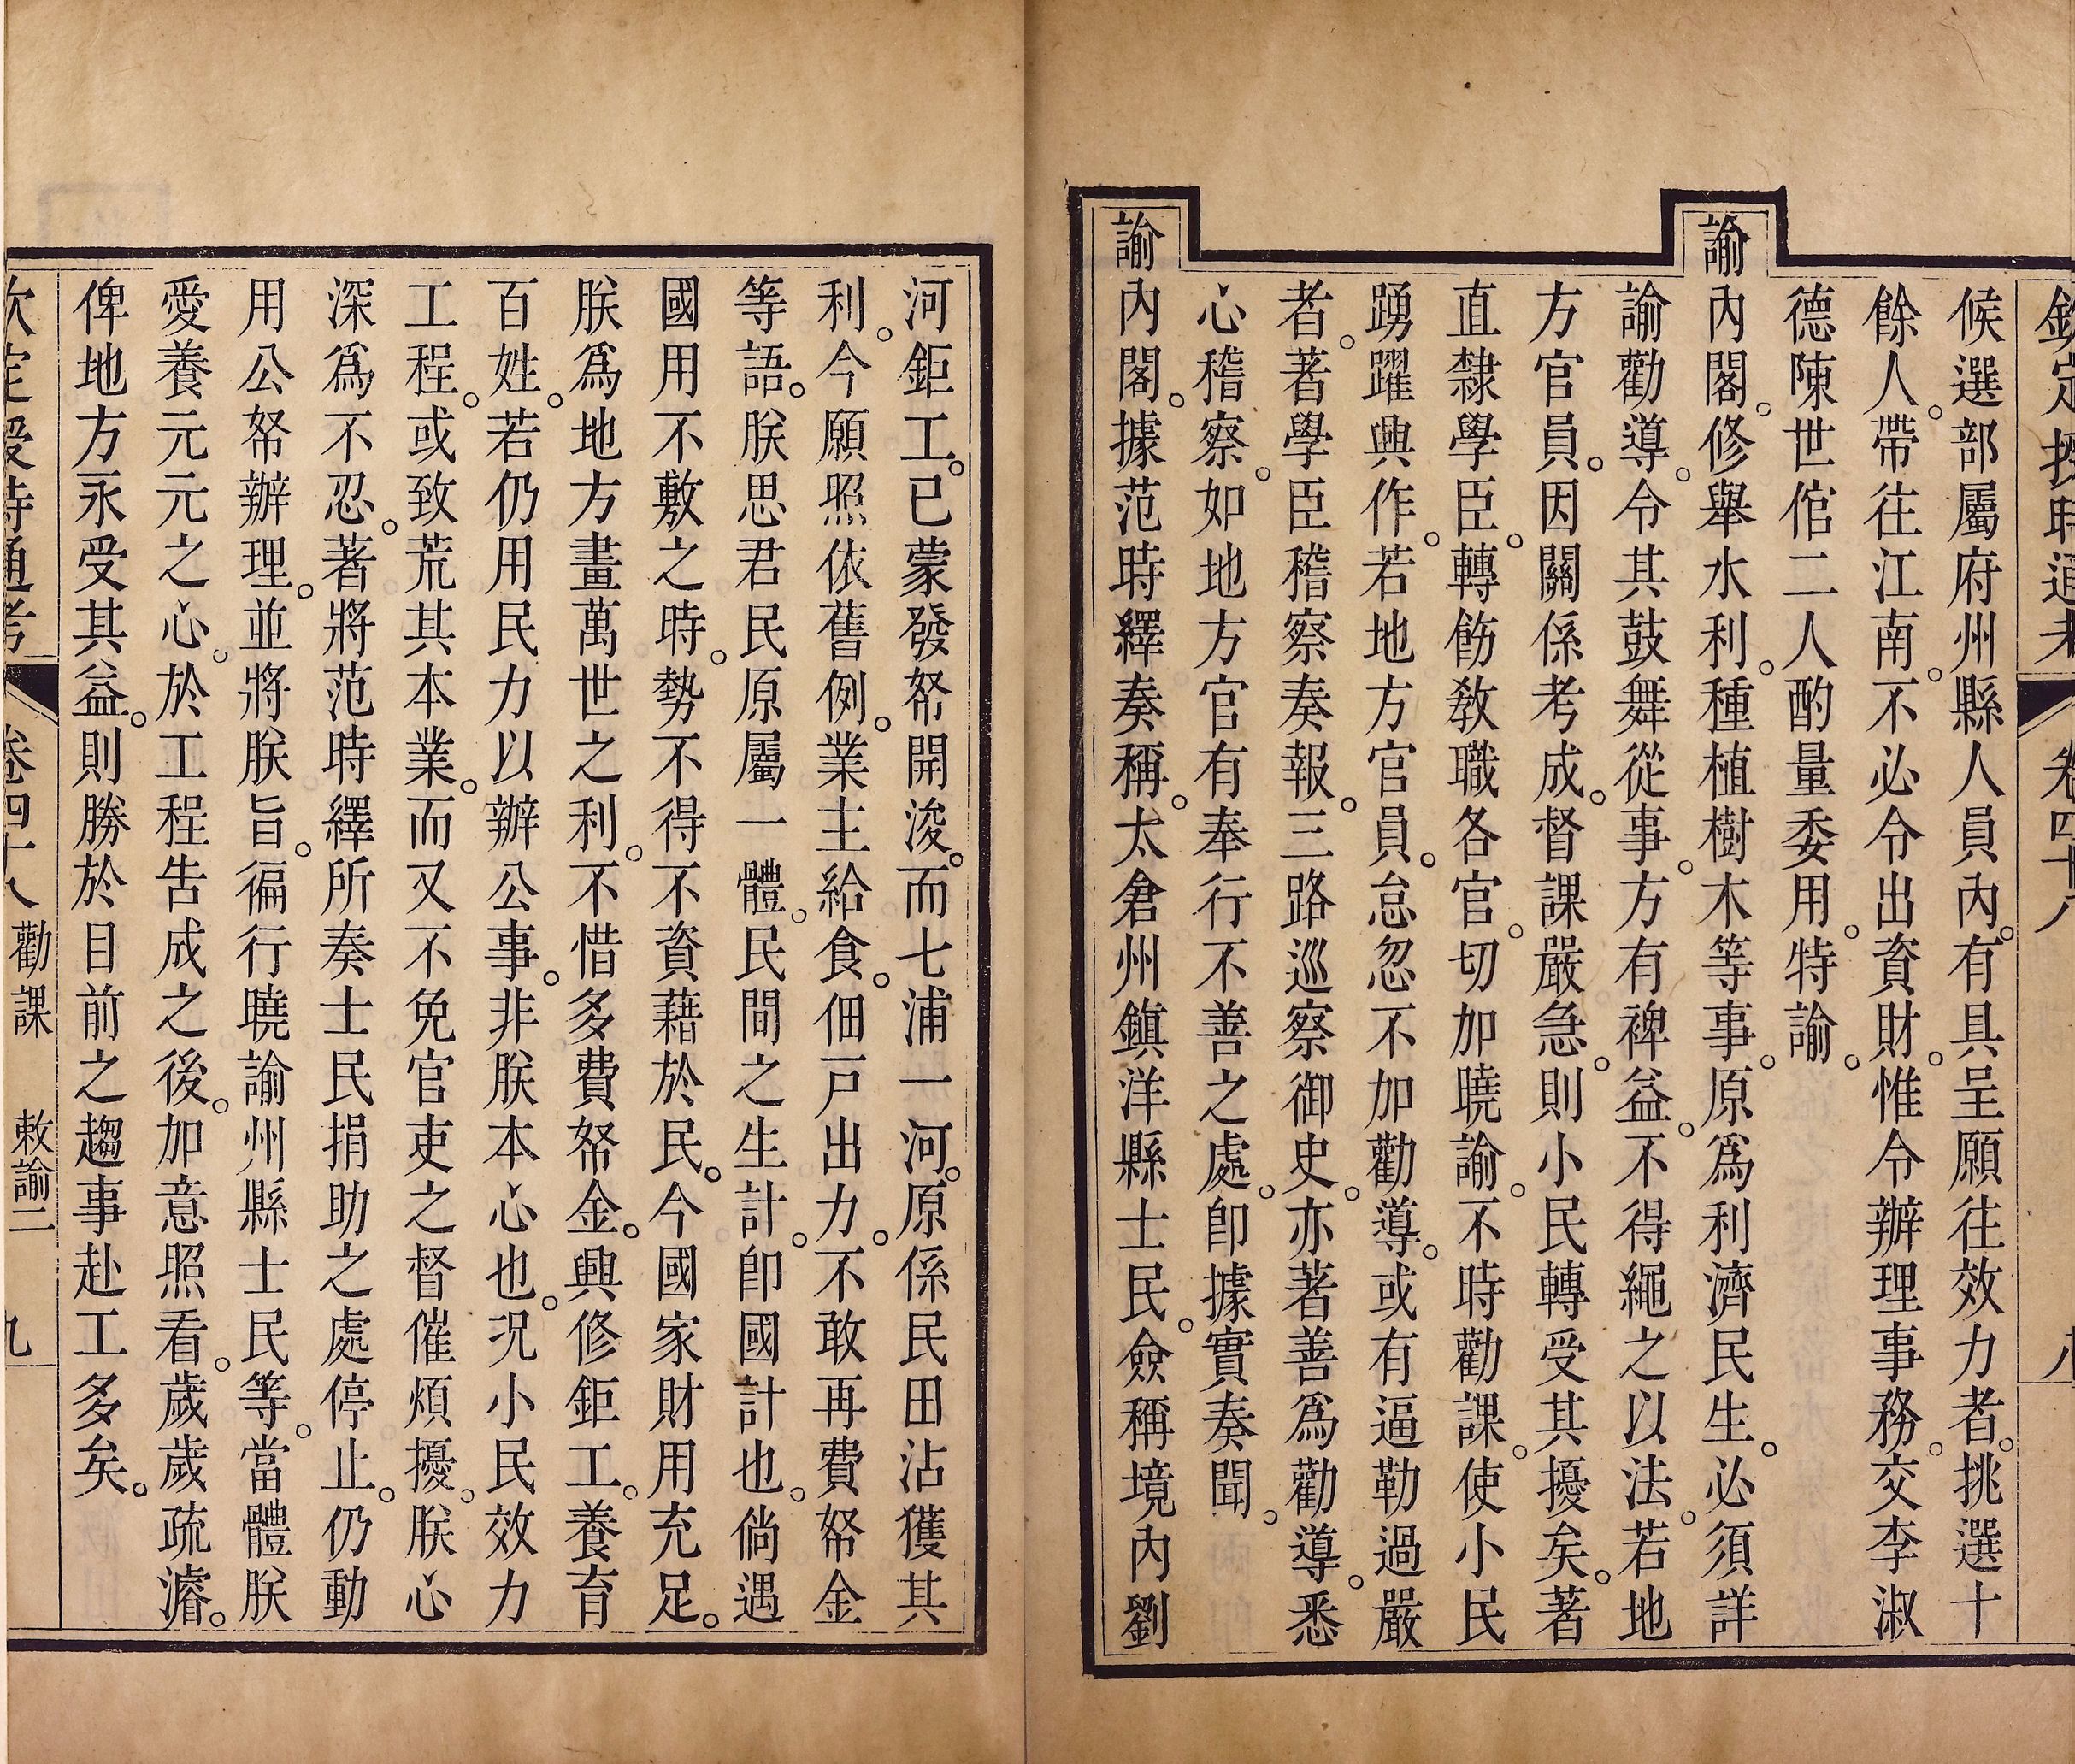 欽定授時通考 卷四十八 八
候選部屬府州縣人員內。有具呈願往效力者。挑選十
餘人。帶往江南。不必令出資財。惟令辦理事務。交李淑
德陳世倌二人酌量委用。特諭。
諭內閣。修舉水利。種植樹木等事。原爲利濟民生。必須詳
諭勸導。令其鼓舞從事。方有裨益。不得繩之以法。若地
方官員。因關係考成。督課嚴急。則小民轉受其擾矣。著
直隸學臣。轉飭敎職各官。切加曉諭。不時勸課。使小民
踴躍興作。若地方官員。怠忽不加勸導。或有逼勒過嚴
者。著學臣稽察奏報。三路巡察御史。亦著善爲勸導。悉
心稽察。如地方官有奉行不善之處。卽據實奏聞。
諭內閣。據范時繹奏稱。太倉州鎭洋縣士民。僉稱境內劉
河鉅工。已蒙發帑開浚。而七浦一河。原係民田沾獲其
利。今願照依舊例。業主給食。佃戸出力。不敢再費帑金
等語。朕思君民原屬一體。民間之生計。卽國計也。倘遇
國用不敷之時。勢不得不資藉於民。今國家財用充足。
朕爲地方畫萬世之利。不惜多費帑金。興修鉅工。養育
百姓。若仍用民力以辦公事。非朕本心也。況小民效力
工程。或致荒其本業。而又不免官吏之督催煩擾。朕心
深爲不忍。著將范時繹所奏士民捐助之處停止。仍動
用公帑辦理。並將朕旨。徧行曉諭州縣士民等。當體朕
愛養元元之心。於工程吿成之後。加意照看。歲歲疏濬。
俾地方永受其益。則勝於目前之趨事赴工多矣。
欽定授時通考 卷四十八 勸課 敕諭二 九